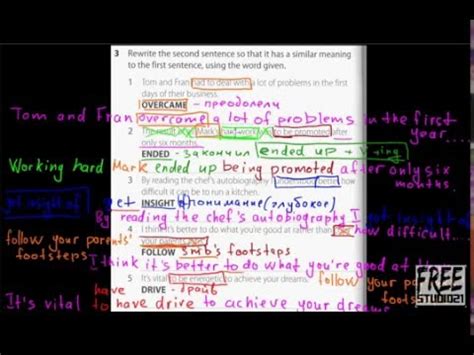 3 Rewrite the second sentence so that it has a similar meaning
to the first sentence, using the word given.
1 Tom and Fran had to deal with a lot of problems in the first
days of their business.
OVERCAME - преодолели
Tom and Fran overcame a lot of problems in the first
year...
2 The result of Mark's hard work was to be promoted after
only six months.
ENDED - закончил ended up + V-ing
Working hard Mark ended up being promoted after only six
months
3 By reading the chef's autobiography I understood better how
difficult it can be to run a kitchen.
get insight of INSIGHT понимание (глубокое)
By reading the chef's autobiography I got insight of
how difficult...
4 I think it's better to do what you're good at rather than
follow your parents'
footsteps
FOLLOW smb's footsteps
I think it's better to do what you're good at than
follow your parents'
footsteps
5 It's vital to be energetic to achieve your dreams.
have
DRIVE - драйв
It's vital to have drive to achieve your dreams
FREE
STUDIO21